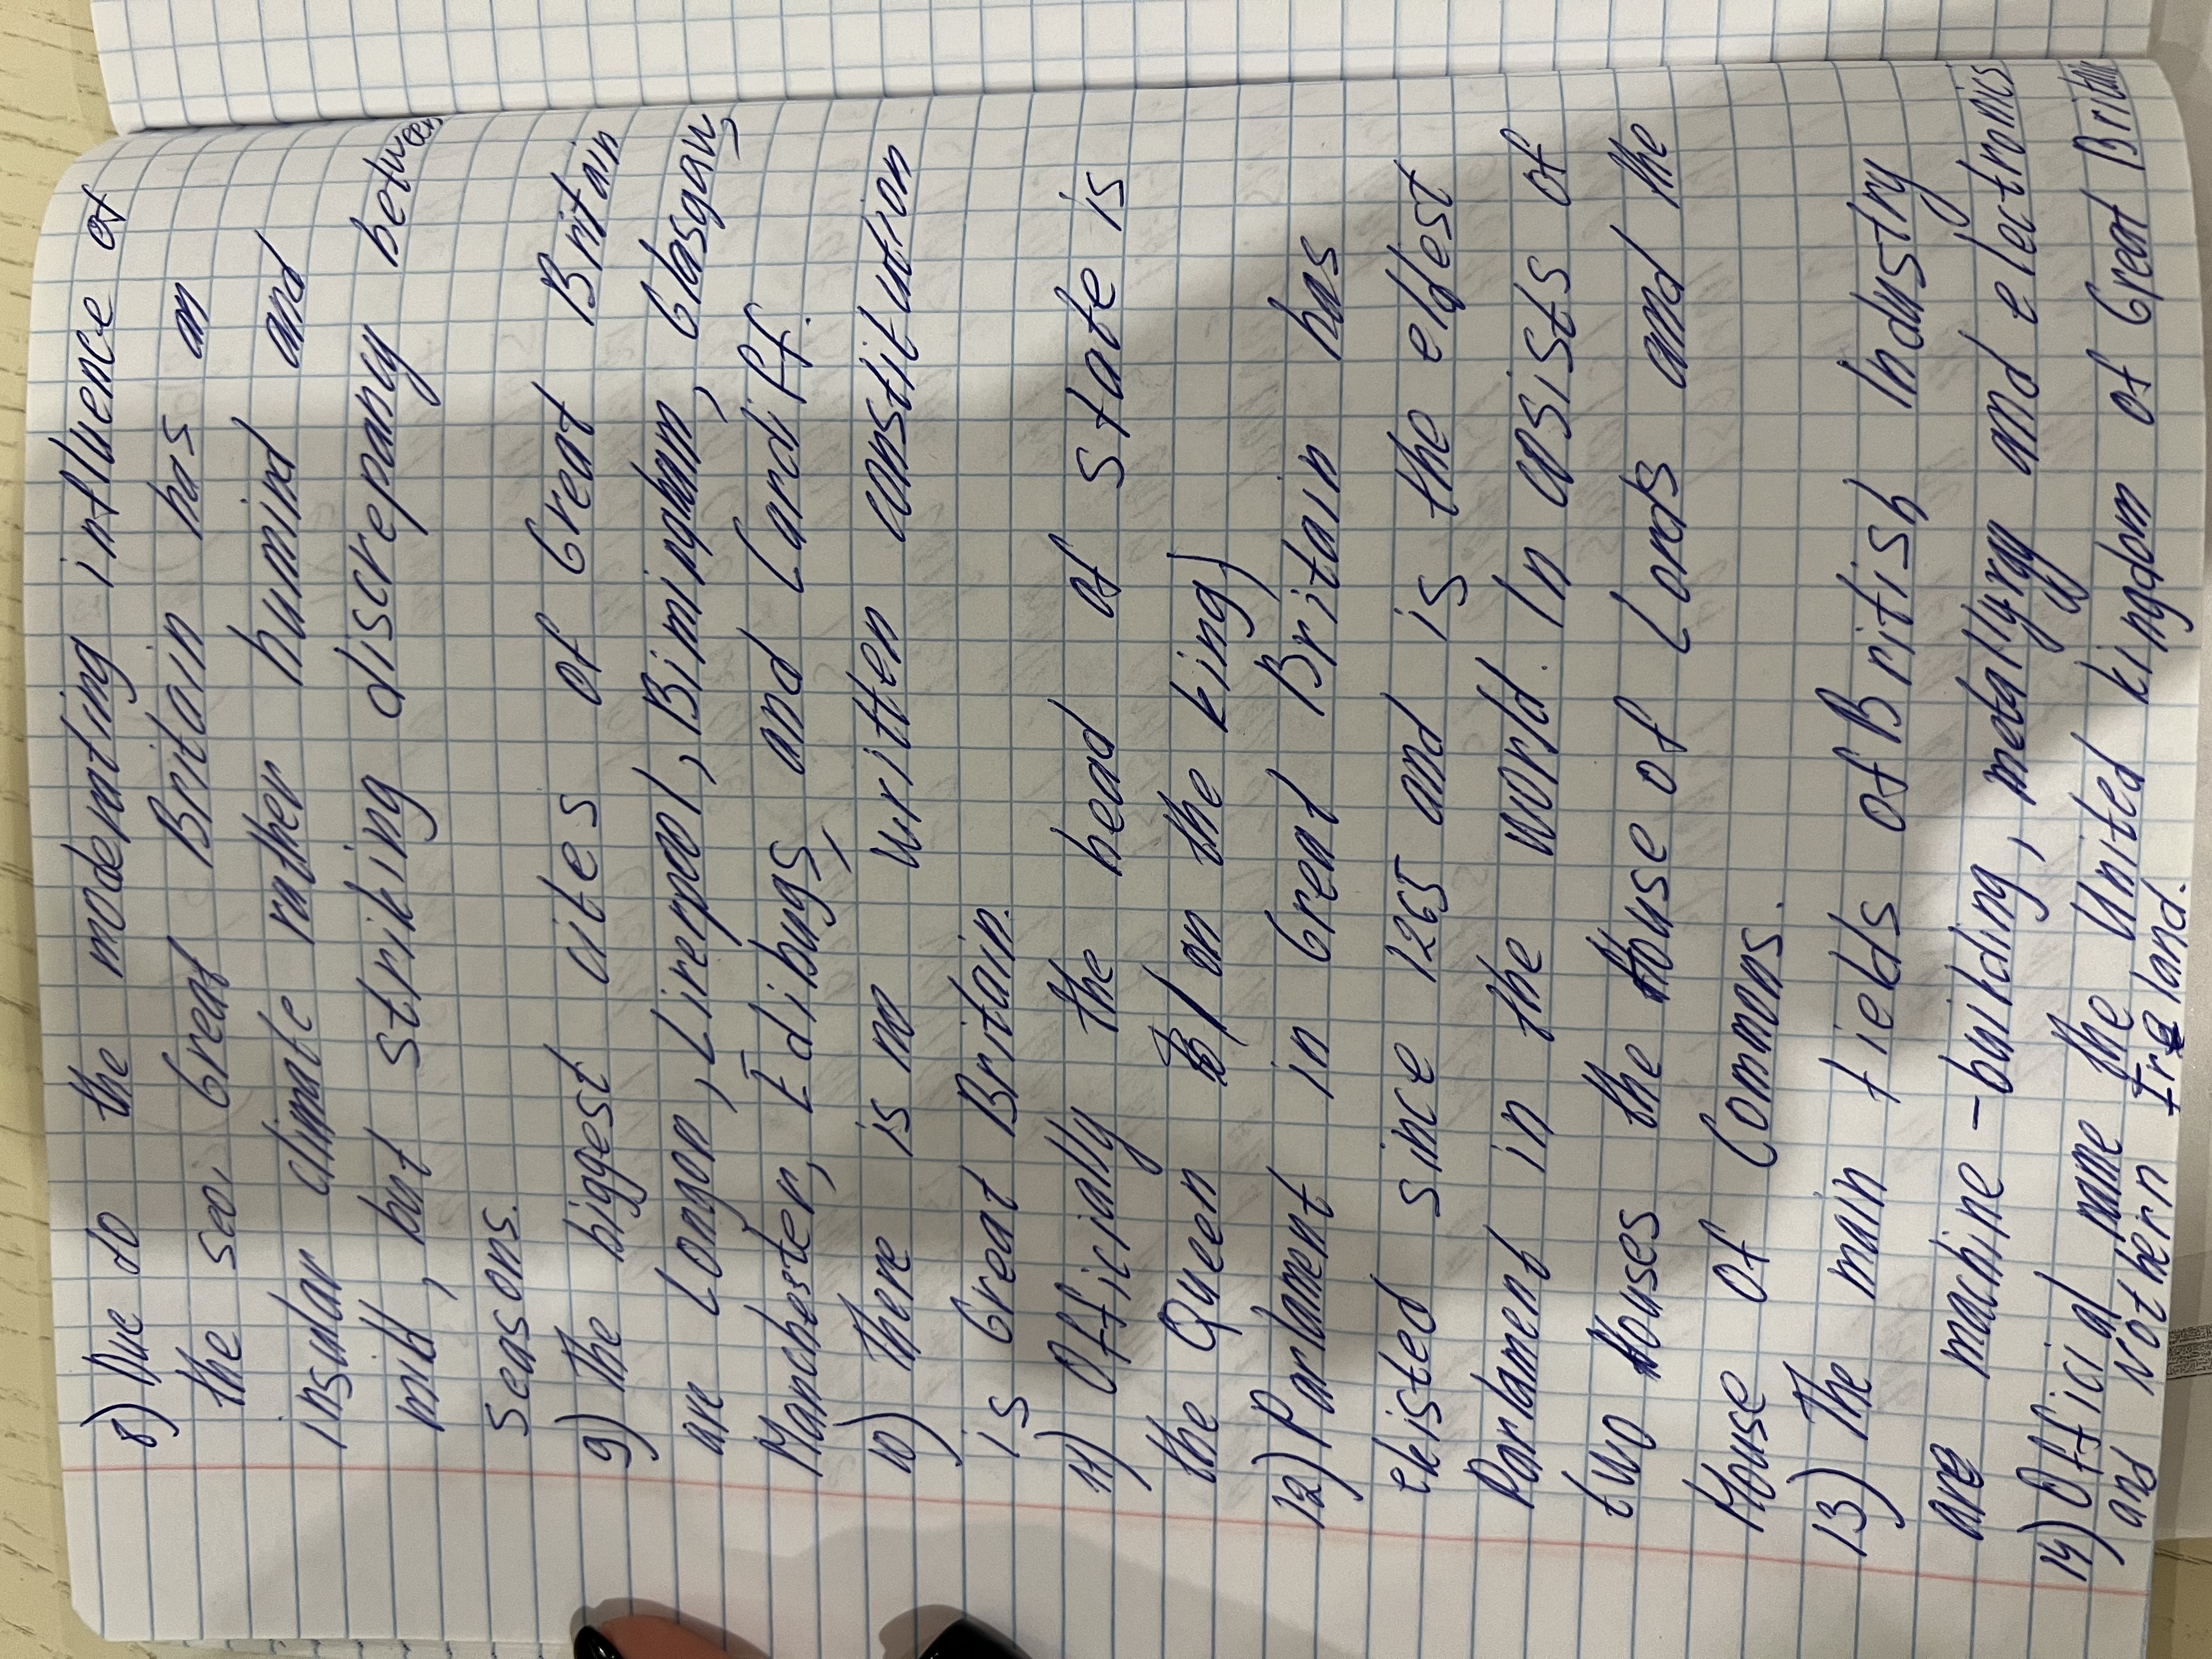 8) Due do the moderating influence of
the sea, Great Britain has an
insular climate rather humind and
mild, but striking discrepany between
seasons.
9) The biggest cites of Great Britain
are Longon, Liverpool, Bimingham, Glasgow,
Manchester, Edibugs, and Cardiff.
10) There is no written constitution
is Great Britain.
11) Officially the head of state is
the Queen (on the king)
12) Parlament in Great Britain has
ekisted since 1265 and is the eldest
Parlament in the world. In cosists of
two Houses the House of Lords and the
House of Commons.
13) The main fields of British Industry
are machine-building, metallyrgy and electronics
14) Official name the United kingdom of Great Britain
and Nothern Ireland.